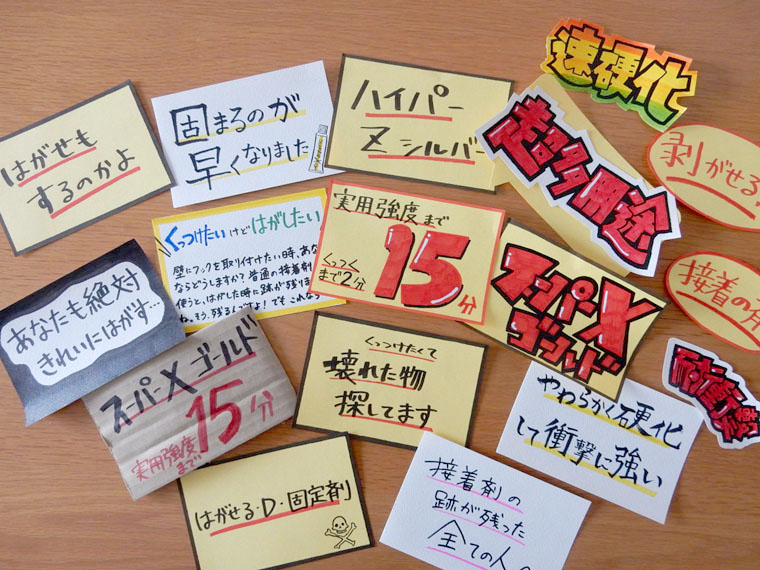 はがせも
するのかよ
固まるのが
早くなりました
ハイパー
Zシルバー
速硬化
超多用途
剥がせる
くっつけたいけどはがしたい
壁にフックを取り付けたい時、あな
ならどうしますか?普通の接着剤
使うと、はがした時に跡が残りま
実用強度まで
くっつく
まで2分
15分
スーパーX
ゴールド
接着の
あなたも絶対
きれいにはがす…
スーパーXゴールド
実用強度
まで
15分
くっつけたくて
壊れた物
探してます
やわらかく硬化
して衝撃に強い
耐衝撃
はがせる・D・固定剤
接着剤の
跡が残った
全ての人の